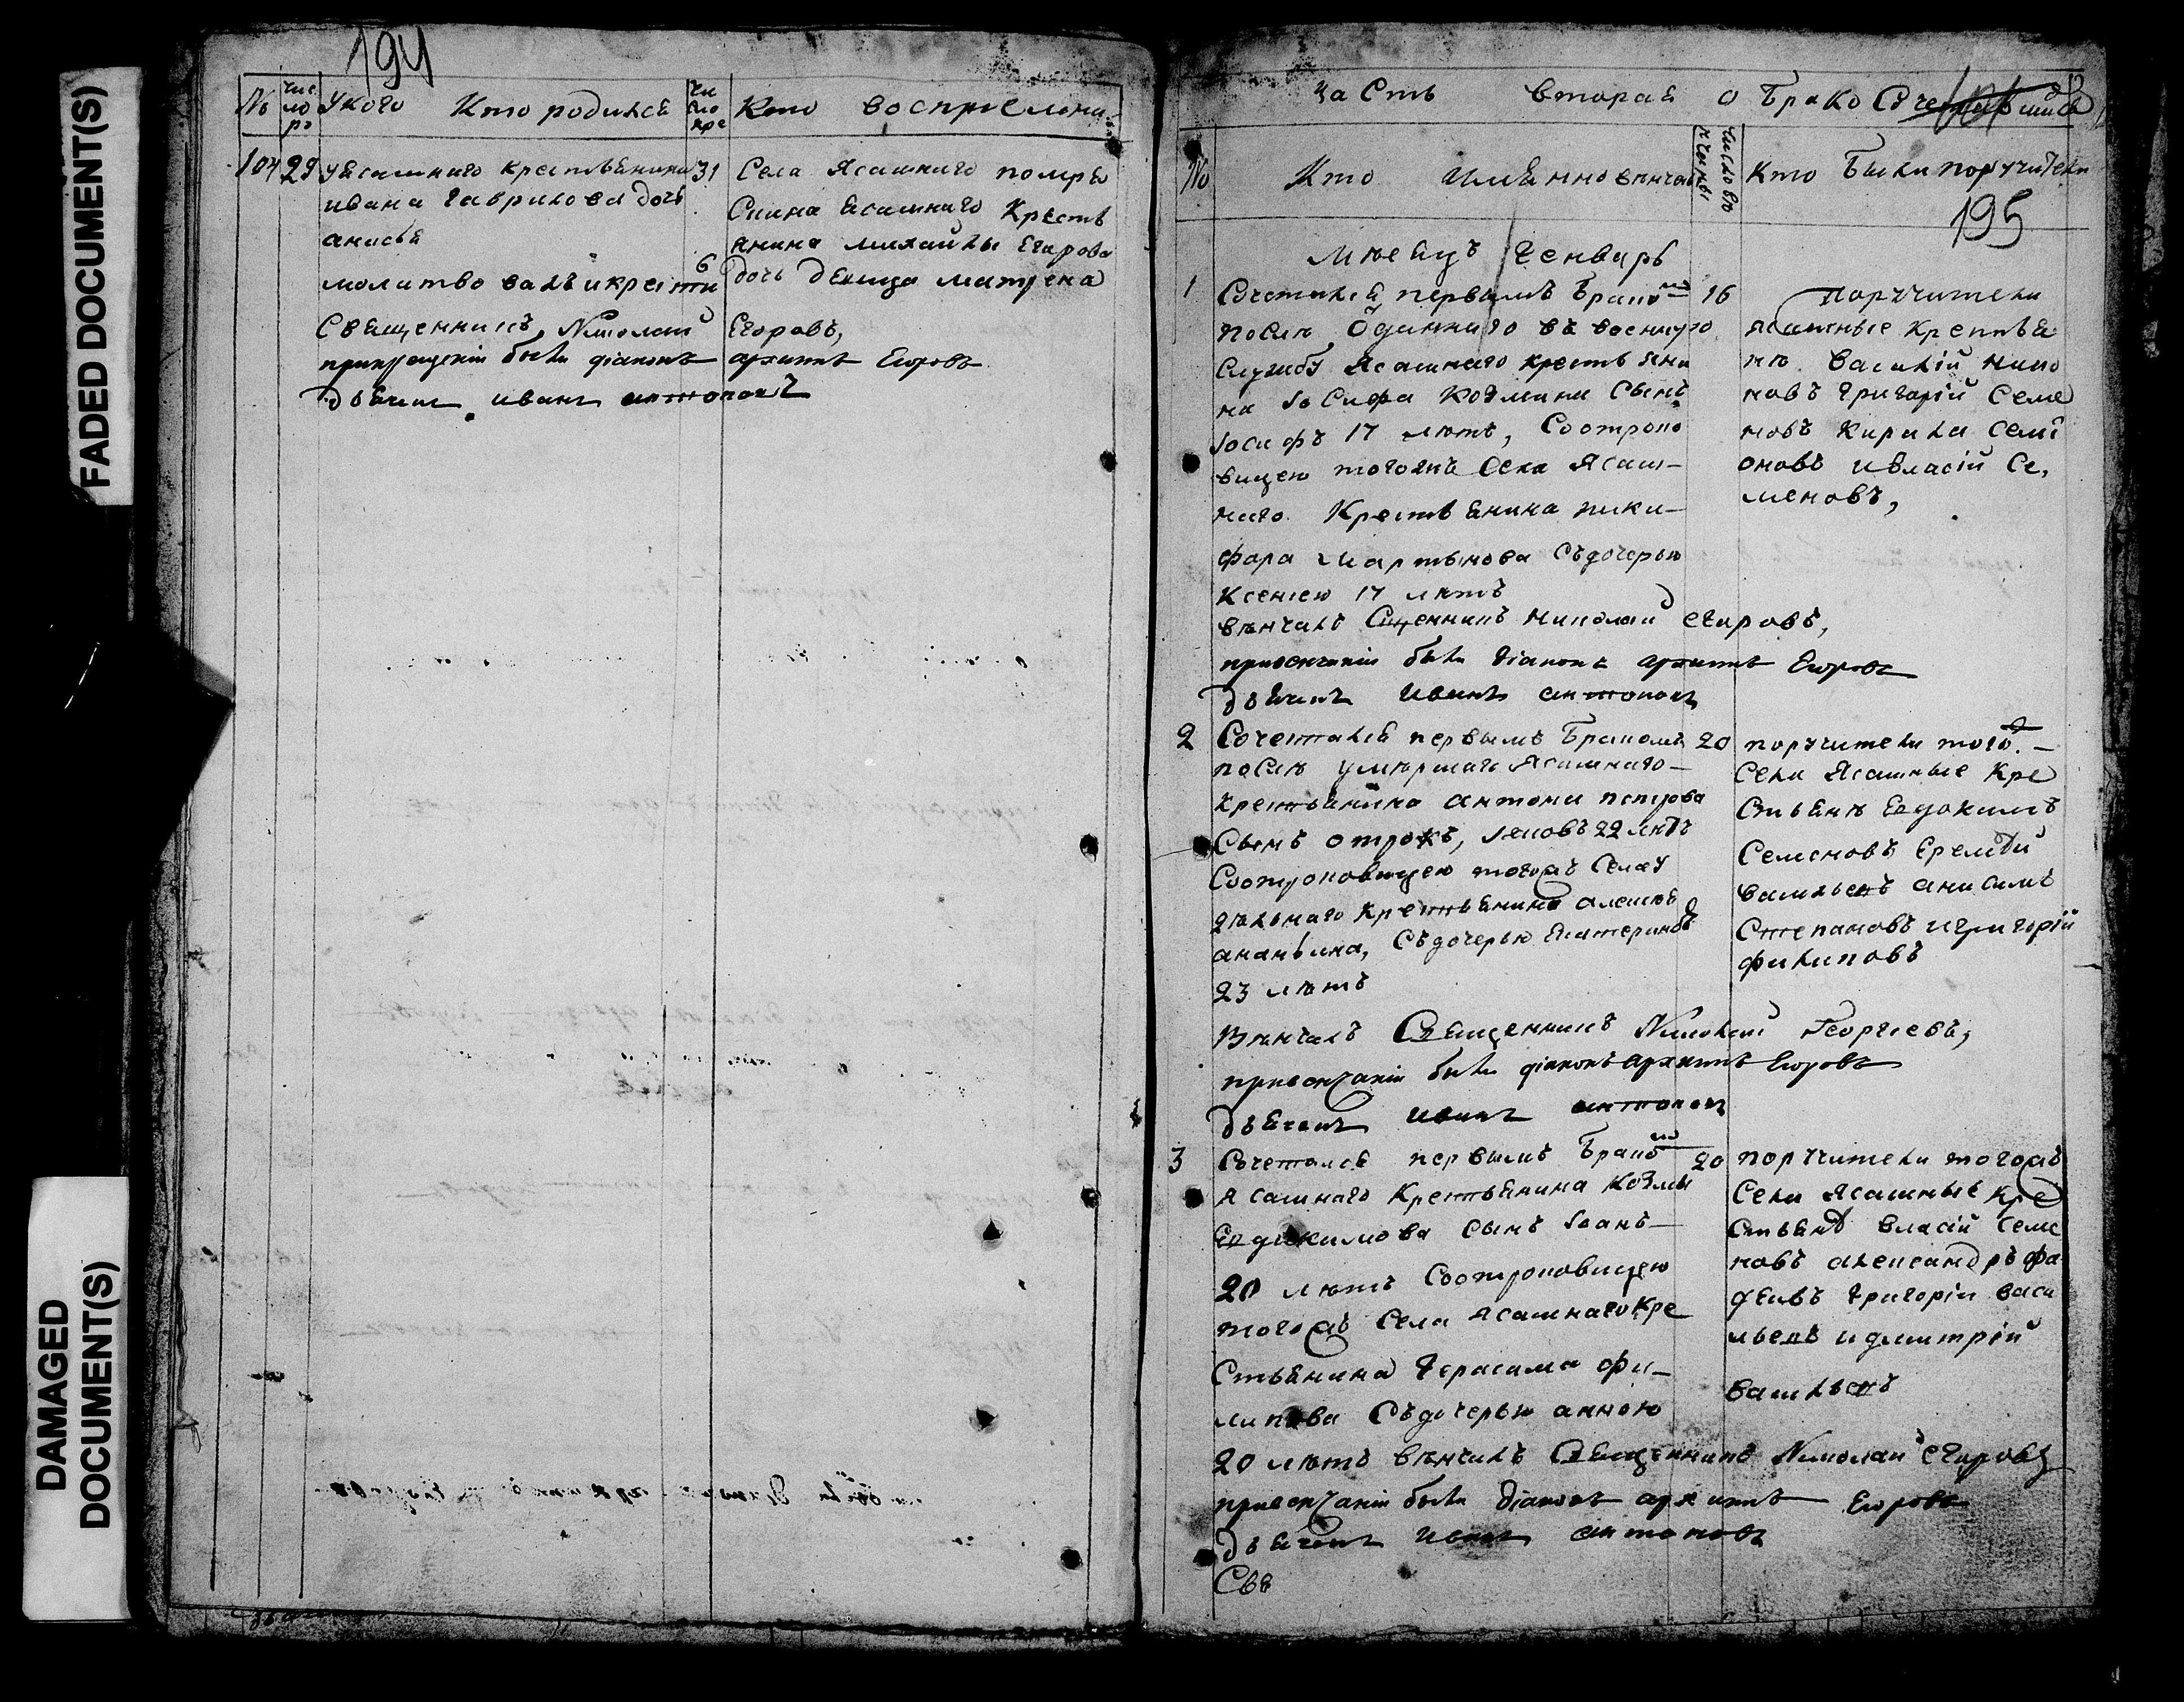 FADED DOCUMENT(S)
DAMAGED DOCUMENT(S)
194
№ Чис ло ро Укого Кто родился Чи сло кре Кто восприемни
104 29 уясашнаго крестьянина 31
ивана гаврилова дочь
анисья
молитвовалъ икрестилъ
Села Ясашнаго помра
Ясашнаго Кресть
янина михайлы Егорова
дочь девица матрена
Священникъ Николай Егоровъ,
прикрещеніи были діаконъ архипъ Егоровъ
дьячекъ иванъ антоновъ
Часть вторая о Бракосочетавшихся
№ Кто имянно венчаны Число венчаны Кто Были поручители
195
мѣсяцъ Генварь
1 Сочетался первымъ Бракомъ 16
послѣ отданнаго въ военную
Службу Ясашнаго крестьяни
на Іосифа Козмина Сынъ
Іосифъ 17 лѣтъ, Соотроко
вицею тогожъ Села Ясаш-
наго Крестьянина ники-
фора Мартынова Съдочерью
Ксеніею 17 лѣтъ
поручители
ясашные крестья
нѣ Василій Нико
новъ Григорій Семе
новъ Кирила Семі
оновъ ивласій Се,
меновъ,
вѣнчалъ Сщенникъ Николай Егоровъ,
привенчаніи были діаконъ архипъ Егоровъ
дьячекъ Иванъ антоновъ
2 Сочетался первымъ Бракомъ 20
послѣ умершаго Ясашнаго-
крестьянина антона петрова
Сынъ отрокъ, Іяковъ 22 лѣтъ
Соотроковицею тогожъ Села У
дѣльнаго крестьянина алексѣя
ананьина, Съдочерью Екатериною
23 лѣтъ
поручители того.-
Села Ясашные Кре
Стьянѣ Евдокимъ
Семеновъ Еремѣй
васильевъ анисимъ
Степановъ игригорій
филиповъ
Вѣнчалъ Священникъ Николай Георгіевъ,
привенчаніи были діаконъ архипъ Егоровъ
дьячекъ Иванъ антоновъ
3 Сочетался первымъ Бракомъ 20
ясашнаго Крестьянина Козмы
Евдокимова Сынъ Іоанъ-
20 лѣтъ Соотроковицею
тогожъ Села ясашнаго Кре
Стьянина Герасима Фи-
липова Съдочерью анною
поручители тогожъ
Села Ясашные Кре
Стьянѣ власій Семе
новъ александръ фа
деевъ григоріи васи
льевъ идмитрій
васильевъ
20 лѣтъ вѣнчалъ Священникъ Николай Егоровъ
привенчаніи были діаконъ архипъ Егоровъ
дьячекъ Иванъ антоновъ
Свя